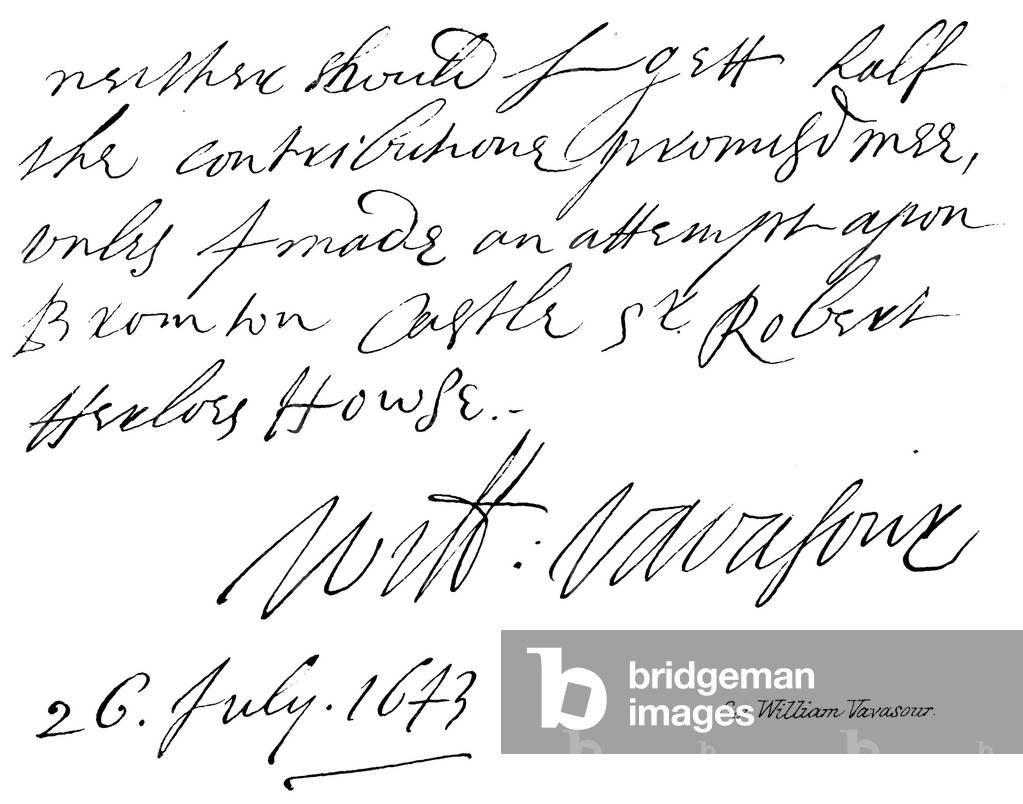 neither should I gett half
the contributione promisd mee,
unles I made an attempt upon
Bromton Castle sr. Robert
Herloes Howse.-
Will: Vavasour
26. July. 1643
bridgeman
images
Sr. William Vavasour.